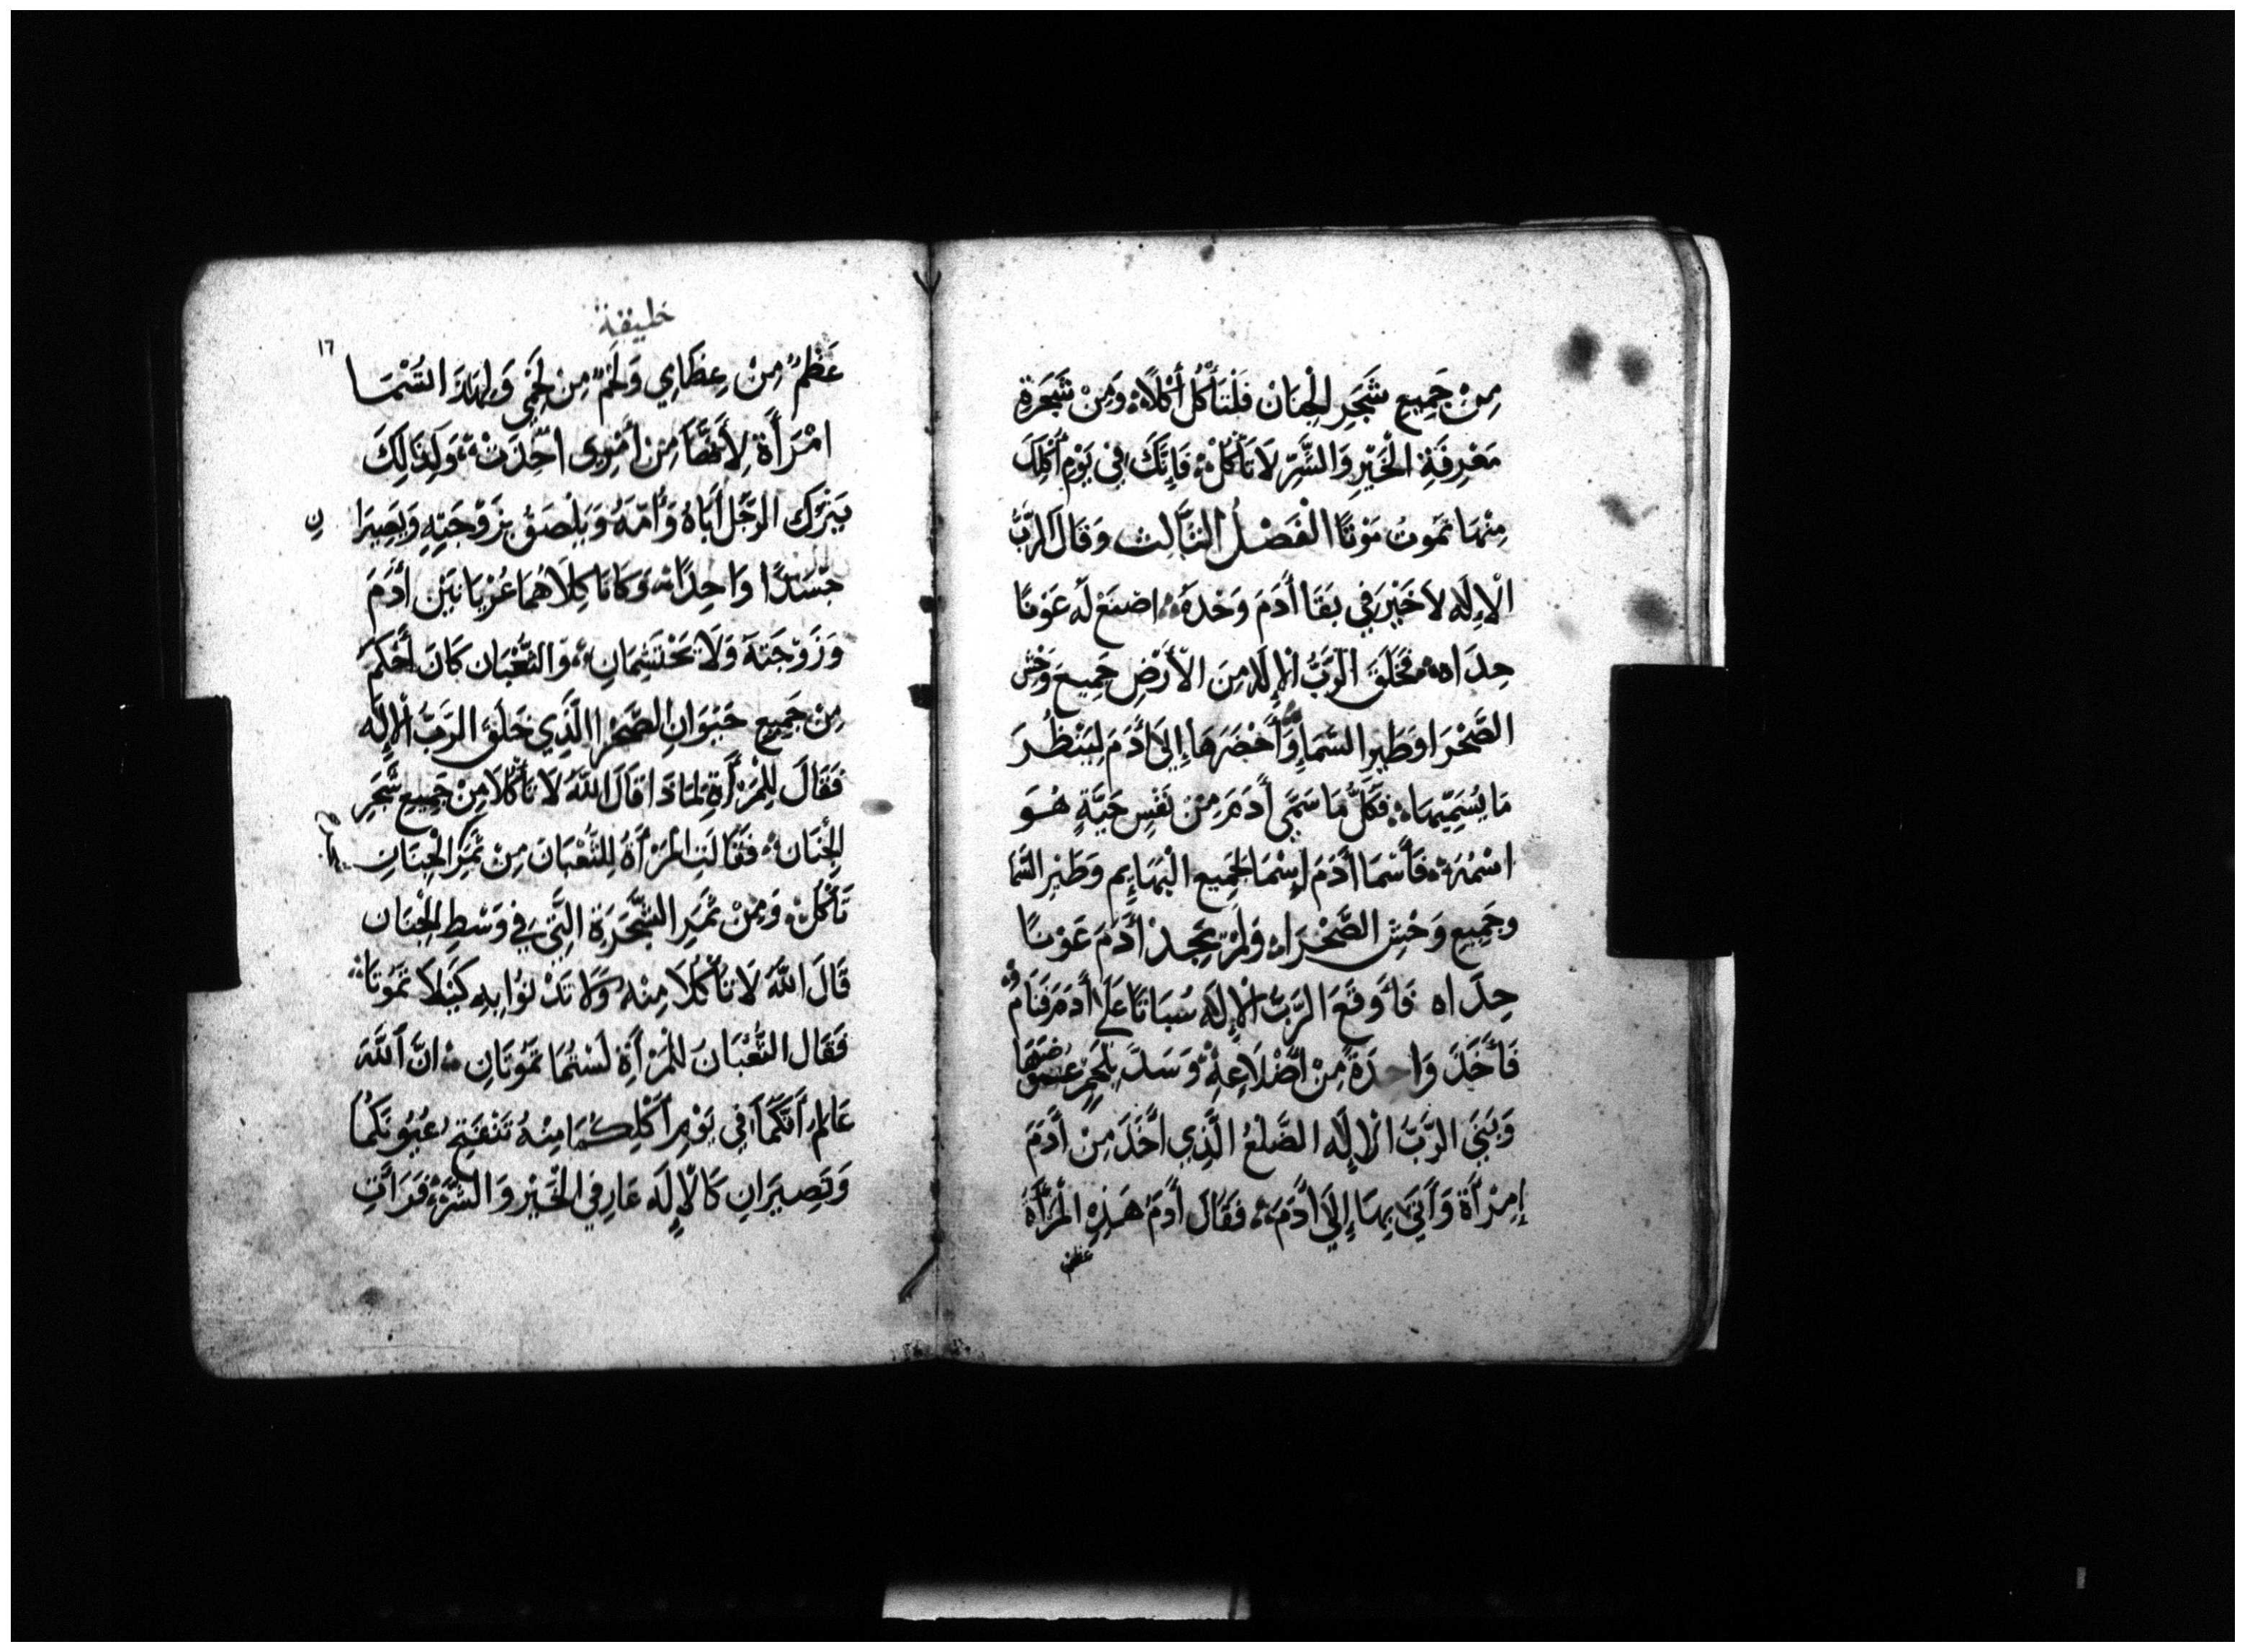 مِنْ جَمِيعِ شَجَرِ الْجِنَانْ فَلْتَأْكُلْ أَكْلًا ۞ وَمِنْ شَجَرَةِ
مَعْرِفَةِ الْخَيْرِ وَالشَّرِّ لَا تَأْكُلْ ۞ فَإِنَّكَ فِي يَوْمِ أَكْلِكَ
مِنْهَا تَمُوتُ مَوْتًا الْفَصْلُ الثَّالِث وَقَالَ الرَّبُّ
الْإِلَه لَا خَيْرَ فِي بَقَا أَدَمَ وَحْدَهُ ۞ اصْنَعْ لَهُ عَوْنًا
حِدَاه ۞ فَخَلَقَ الرَّبُّ الْإِلَهُ مِنَ الْأَرْضِ جَمِيعَ وَحْشِ
الصَّحْرَا وَطَيْرِ السَّمَا وَأَحْضَرَهَا إِلَى أَدَمَ لِيَنْظُرَ
مَا يُسَمِّيهَا ۞ فَكُلُّ مَا سَمَّى أَدَمَ مِنْ نَفْسٍ حَيَّةٍ هُوَ
اسْمُهُ ۞ فَأَسْمَا أَدَمَ إِسْمَا لِجَمِيعِ الْبَهَايِم وَطَيْرِ السَّمَا
وَجَمِيعِ وَحْشِ الصَّحْرَا ۞ وَلَمْ يَجِدْ أَدَمَ عَوْنًا
حِدَاه فَأَوْقَعَ الرَّبُّ الْإِلَهُ سُبَاتًا عَلَى أَدَمَ فَنَامَ ۞
فَأَخَذَ وَاحِدَةً مِنْ أَضْلَاعِهِ ۞ وَسَدَّ بِلَحْمٍ عِوَضَهَا
وَبَنَى الرَّبُّ الْإِلَه الضَّلْعُ الَّذِي أَخَذَ مِنْ أَدَمَ
إِمْرَأَةً وَأَتَى بِهَا إِلَى أَدَمَ ۞ فَقَالَ أَدَمُ هَذِهِ الْمَرْأَةُ
عظم
خليقة
١٦
عَظْمٌ مِنْ عِظَامِي وَلَحْمٌ مِنْ لَحْمِي وَلِهَذَا تُسَمَّا
امْرَأَة لِأَنَّهَا مِن أَمْرِي اُخِذَتْ ۞ وَلِذَلِكَ
يَتْرُك الرَّجُل أَبَاهُ وَأُمَّهُ وَيَلْصَقْ بِزَوْجَتِهِ وَيَصِيرَا
ن
جَسَدًا وَاحِدًا ۞ وَكَانَا كِلَاهُمَا عُرْيَانَيْن أَدَمَ
وَزَوْجَتَهُ وَلَا يَحْتَشِمَانِ ۞ وَالثُّعْبَان كَانَ أَحْكَمَ
مِنْ جَمِيعِ حَيْوَانِ الصَّحْرَا الَّذِي خَلَقَ الرَّبُّ الْإِلَه
فَقَالَ لِلْمَرْأَةِ لِمَاذَا قَالَ اللَّهُ لَا تَأْكُلَا مِنْ جَمِيعِ شَجَرِ
الْجِنَان ۞ فَقَالَتِ الْمَرْأَةُ لِلثُّعْبَان مِنْ ثَمَرِ الْجِنَانِ
نَأْكُلْ ۞ وَمِنْ ثَمَرِ الشَّجَرَةِ الَّتِي فِي وَسْطِ الْجِنَان
قَالَ اللَّهُ لَا تَأْكُلَا مِنْهُ وَلَا تَدْنُوا بِهِ كَيْلَا تَمُوتَا ۞
فَقَالَ الثُّعْبَانُ لِلْمَرْأَةِ لَسْتُمَا تَمُوتَانِ ۞ انَّ اللَّهَ
عَالِمٌ أَنَّكُمَا فِي يَوْمِ أَكْلِكُمَا مِنْهُ تَنْفَتِحُ عُيُونَكُمَا
وَتَصِيرَانِ كَالْإِلَه عَارِفِي الْخَيْرِ وَالشَّرِّ ۞ فَرَأَتِ